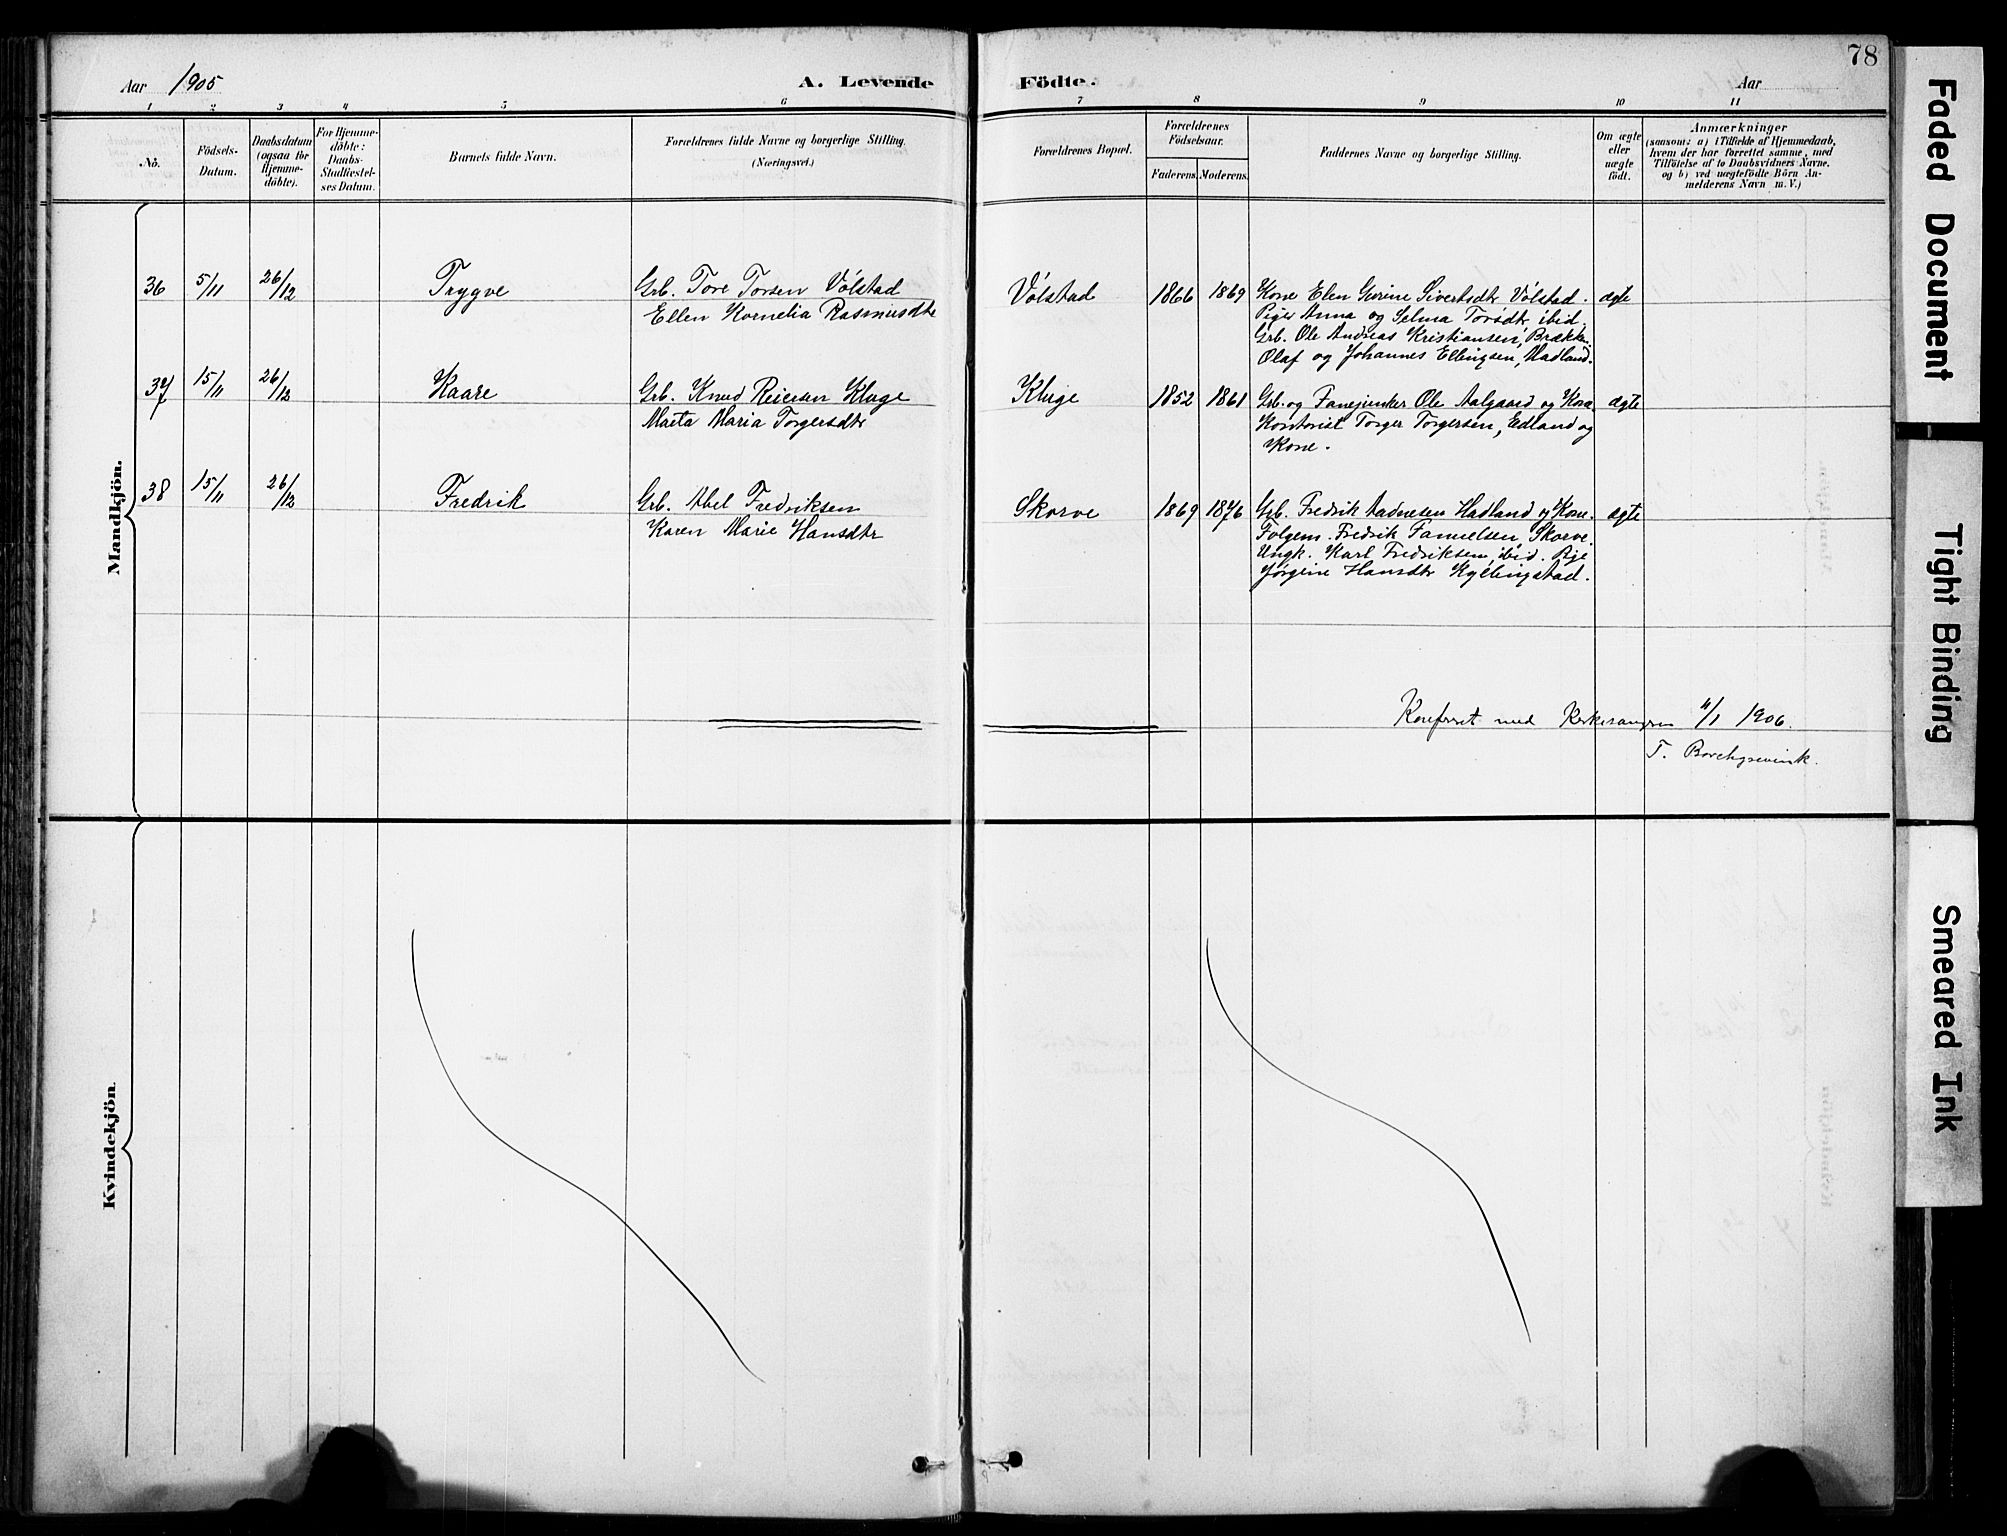 78
Aar 1905
A. Levende Födte.
Aar
1 2 3 4 5 6 7 8 9 10 11
No.
Födsels-
Datum.
Daabsdatum
(ogsaa for
Hjemme-
döbte).
For Hjemme-
döbte:
Daabs-
Stadfæstel-
ses Datum.
Barnets fulde Navn.
Forældrenes fulde Navne og borgerlige Stilling.
(Næringsvei.)
Forældrenes Bopæl.
Forældrenes
Födselsaar.
Faderens. Moderens.
Faddernes Navne og borgerlige Stilling.
Om ægte
eller
uægte
födt.
Anmærkninger
(saasom: a) i Tilfælde af Hjemmedaab,
hvem der har forrettet samme, med
Tilföielse af to Daabsvidners Navne,
og b) ved uægtefödte Börn An-
melderens Navn m. V.)
Mandkjön.
36 5/11 26/12 Trygve
Grb. Tore Torsen Vølstad
Ellen Kornelia Rasmusdtr
Vølstad 1866 1869
Kone Elen Gurine Sivertsdtr Vølstad.
Piger Anna og Selma Torsdtr ibid.
Grb. Ole Andreas Kristiansen, Brække.
Olaf og Johannes Ellingsen, Hadland.
ægte
37 15/11 26/12 Kaare
Grb. Knud Reiersen Kluge
Marta Maria Torgersdtr
Kluge 1852 1861
Grb. og Fanejunker Ole Aalgaard og Kone
Kontorist Torger Torgersen, Edland og
Kone.
ægte
38 15/11 26/12 Fredrik
Grb. Abel Fredriksen
Karen Marie Hansdtr
Skorve 1869 1876
Grb. Fredrik Aadnesen Hadland og Kone.
Folgem. Fredrik Tannelsen, Skorve.
Ungk. Karl Fredriksen, ibid. Pige
Jørgine Hansdtr Kyllingstad.
ægte
Konfereret med 1906.
T.
Kvindekjön.
Faded Document
Tight Binding
Smeared Ink